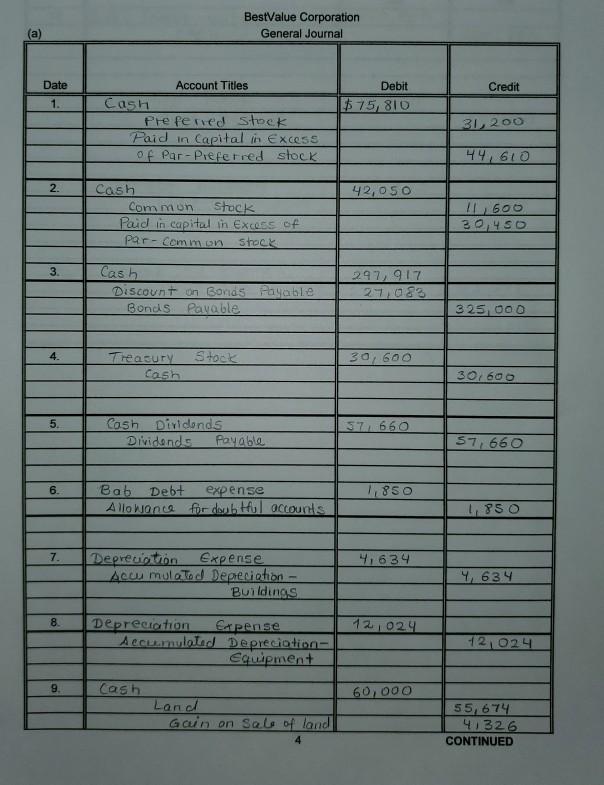 BestValue Corporation
(a) General Journal
Date Account Titles Debit Credit
1. Cash $75,810
Preferred Stock 31,200
Paid in Capital in Excess
of Par-Preferred stock 44,610
2. Cash 42,050
Common Stock 11,600
Paid in capital in Excess of 30,450
Par-Common stock
3. Cash 297,917
Discount on Bonds Payable 27,083
Bonds Payable 325,000
4. Treasury Stock 30,600
Cash 30,600
5. Cash Dividends 57,660
Dividends Payable 57,660
6. Bab Debt expense 1,850
Allowance for doubtful accounts 1,850
7. Depreciation Expense 4,634
Accumulated Depreciation - 4,634
Buildings
8. Depreciation Expense 12,024
Accumulated Depreciation- 12,024
Equipment
9. Cash 60,000
Land 55,674
Gain on Sale of land 4,326
4 CONTINUED